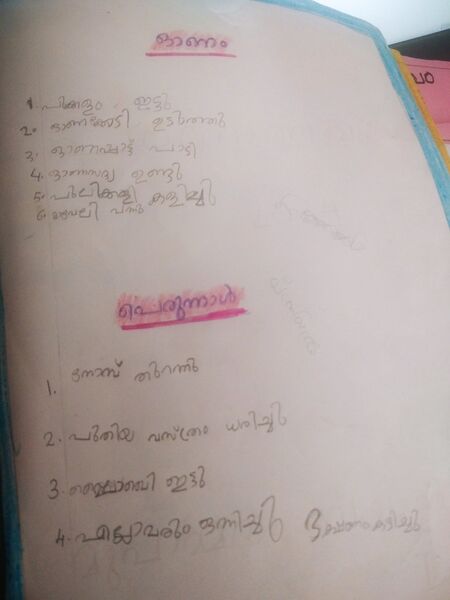 ഓണം
1. പൂക്കളം ഇട്ടു
2. ഓണക്കോടി ഉടുത്തു
3. ഓണപ്പാട്ട് പാടി
4. ഓണസദ്യ ഉണ്ടു
5. പുലിക്കളി കളിച്ചു
6. മാവേലി വന്നു
പെരുന്നാൾ
1. നോമ്പ് തുറന്നു
2. പുതിയ വസ്ത്രം ധരിച്ചു
3. ഇട്ടു
4. എല്ലാവരും ഒന്നിച്ചു ഭക്ഷണം കഴിച്ചു